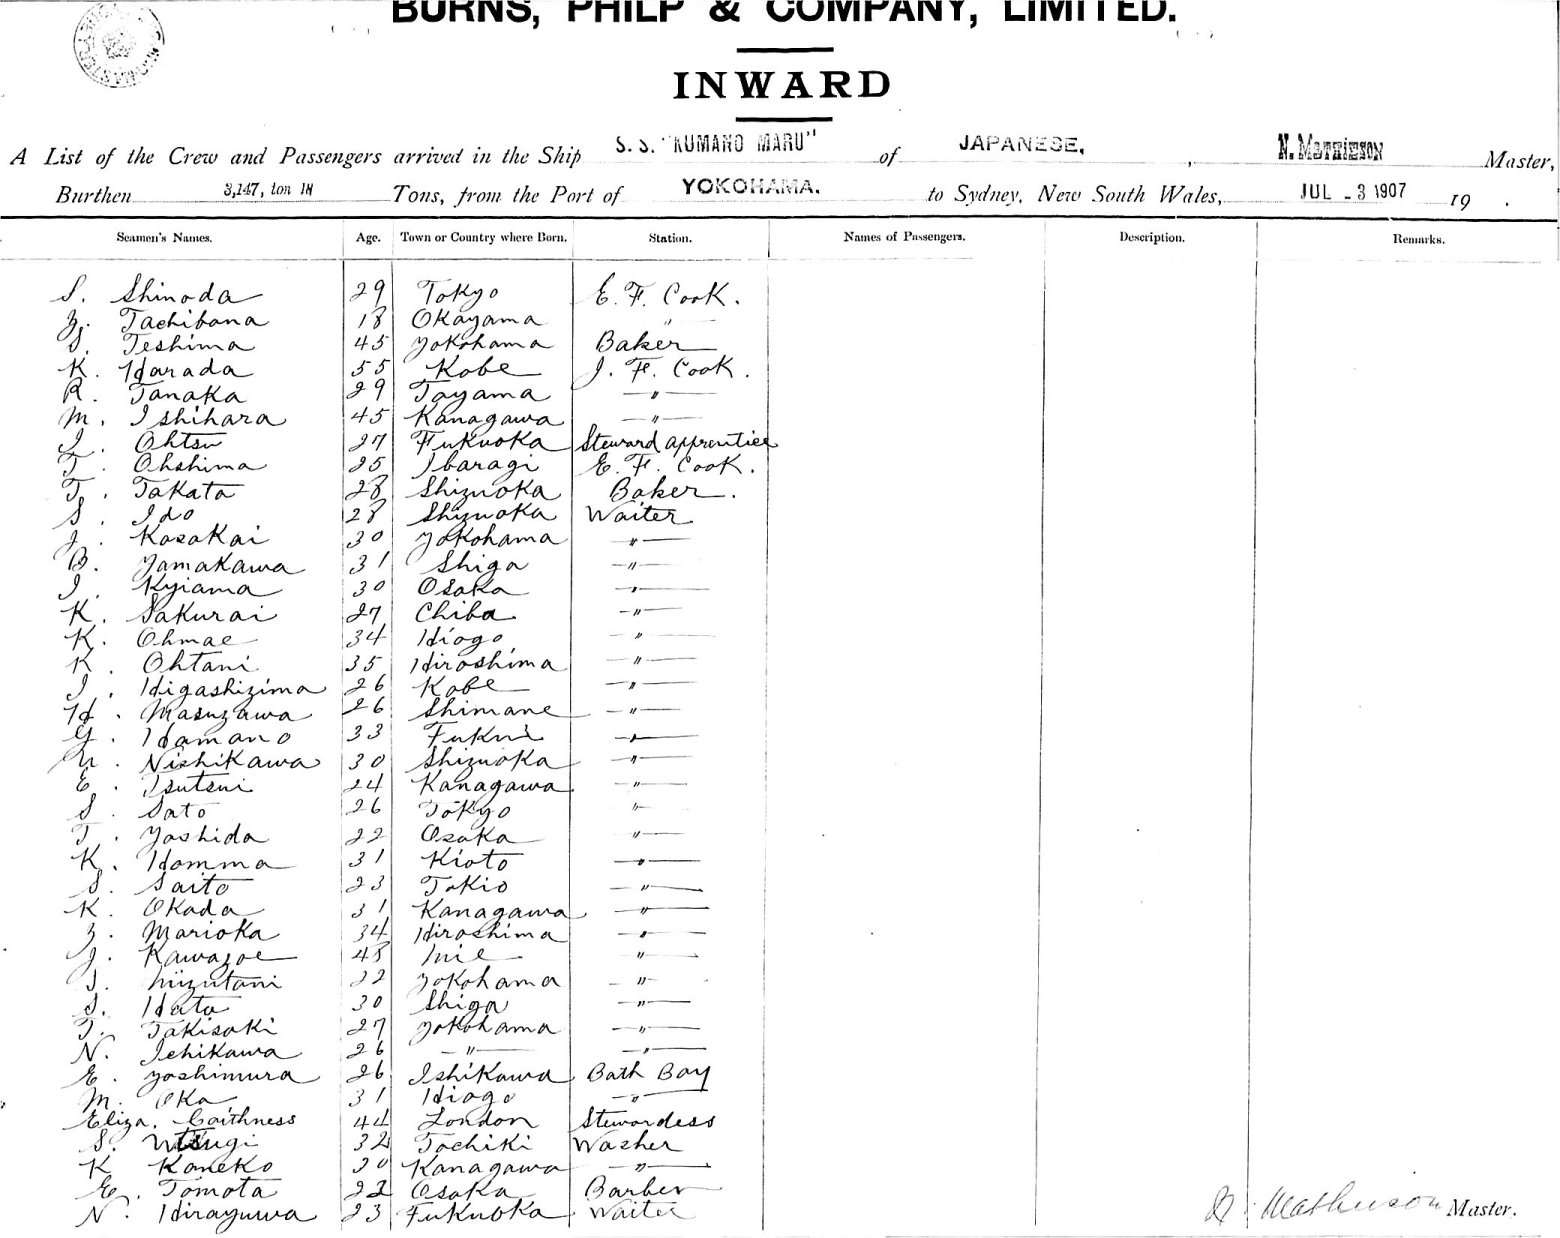 BURNS, PHILP & COMPANY, LIMITED.
INWARD
A List of the Crew and Passengers arrived in the Ship S. S. "KUMANO MARU" of JAPANESE, , N. MATHIESON Master,
Burthen 3,147, ton 18 Tons, from the Port of YOKOHAMA. to Sydney, New South Wales, JUL - 3 1907 19 .
Seamen's Names. Age. Town or Country where Born. Station. Names of Passengers. Description. Remarks.
S. Shinoda 29 Tokyo E. F. Cook.
Z. Tachibana 18 Okayama "
S. Teshima 45 Yokohama Baker
K. Harada 55 Kobe J. F. Cook.
R. Tanaka 29 Toyama "
M. Ishihara 45 Kanagawa "
I. Ohtsu 27 Fukuoka Steward apprentice
T. Ohshima 25 Ibaragi E. F. Cook.
T. Takata 28 Shizuoka Baker.
S. Ido 28 Shizuoka Waiter
J. Kosakai 30 Yokohama "
B. Yamakawa 31 Shiga "
I. Kyiama 30 Osaka "
K. Sakurai 27 Chiba "
K. Ohmae 34 Hiogo "
K. Ohtani 35 Hiroshima "
I. Higashizima 26 Kobe "
H. Masuzawa 26 Shimane "
G. Hamano 33 Fukui "
U. Nishikawa 30 Shizuoka "
E. Tsutsui 24 Kanagawa "
S. Sato 26 Tokyo "
T. Yoshida 22 Osaka "
K. Homma 31 Kioto "
S. Saito 23 Tokio "
K. Okada 31 Kanagawa "
Z. Marioka 34 Hiroshima "
J. Kawazoe 48 Mie "
I. Mizutani 22 Yokohama "
S. Hato 30 Shiga "
T. Takisaki 27 Yokohama "
N. Ichikawa 26 " "
E. Yoshimura 26 Ishikawa Bath Boy
M. Oka 31 Hiogo "
Eliza. Caithness 44 London Stewardess
S. Utsugi 32 Tochiki Washer
K Kaneko 20 Kanagawa "
E. Tomota 22 Osaka Barber
N. Hirayuwa 23 Fukuoka Waiter
N. Mathieson Master.